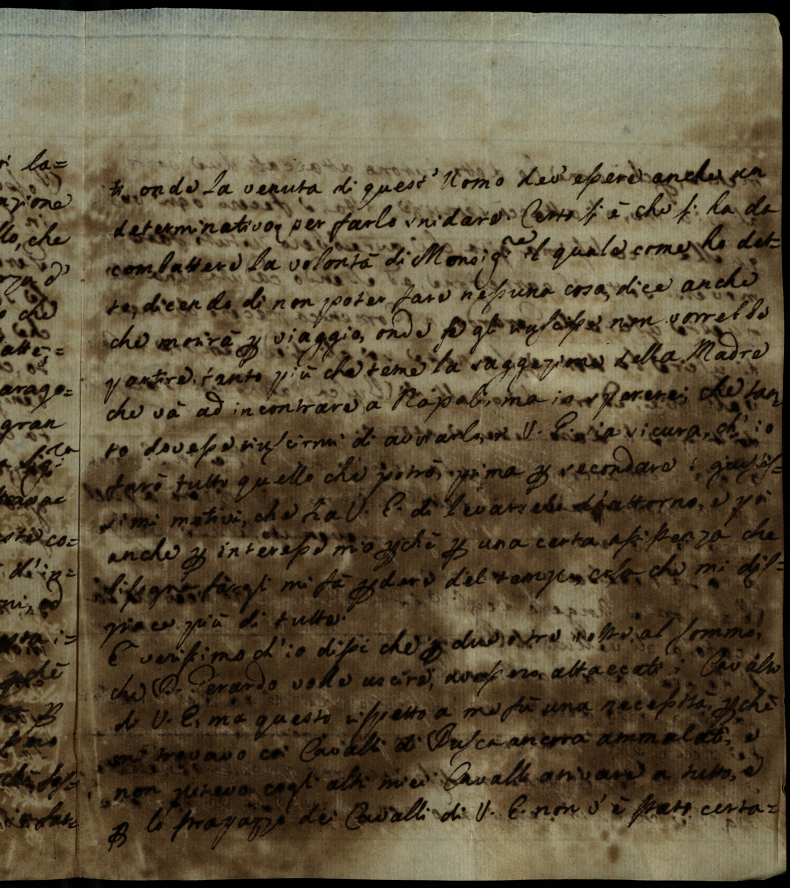 ri la=
azione
llo, che
rza d'
o che
atte,=
arago=
gran
esti co=
i d'in=
ni, ed
ti, onde la venuta di quest'Uomo dev'essere anche un
determinativo per farlo snidare. Certo si è che si ha da
combattere la volontà di Monsig.re il quale come ha det=
to, dicendo di non poter fare nessuna cosa, dice anche
che morirà per viaggio, onde se gli riuscisse non vorrebbe
partire, tanto più che teme la suggezione della Madre
che và ad incontrare a Napoli, ma io spererei che tan
to dovesse riuscirmi di avviarlo, e V. E. sia sicura, ch'io
farò tutto quello che potrò, prima per secondare i giustis=
simi motivi, che ha V. E. di levarselo d'attorno, e poi
anche per interesse mio perchè per una certa assistenza che
bisogna fargli mi fà perdere del tempo, cosa che mi dis=
piace più di tutto.
È verissimo ch'io dissi che per due, o tre volte al sommo,
che D. Gerardo volle uscire, avessero attaccati i Cavalli
di V. E., ma questo rispetto a me fù una necessità, perchè
mi trovavo coi Cavalli di Pusca ancora ammalati, e
non poteva cogli altri miei Cavalli arrivare a tutto, e
per lo strapazzo dei Cavalli di V. E. non v'è stato certa=